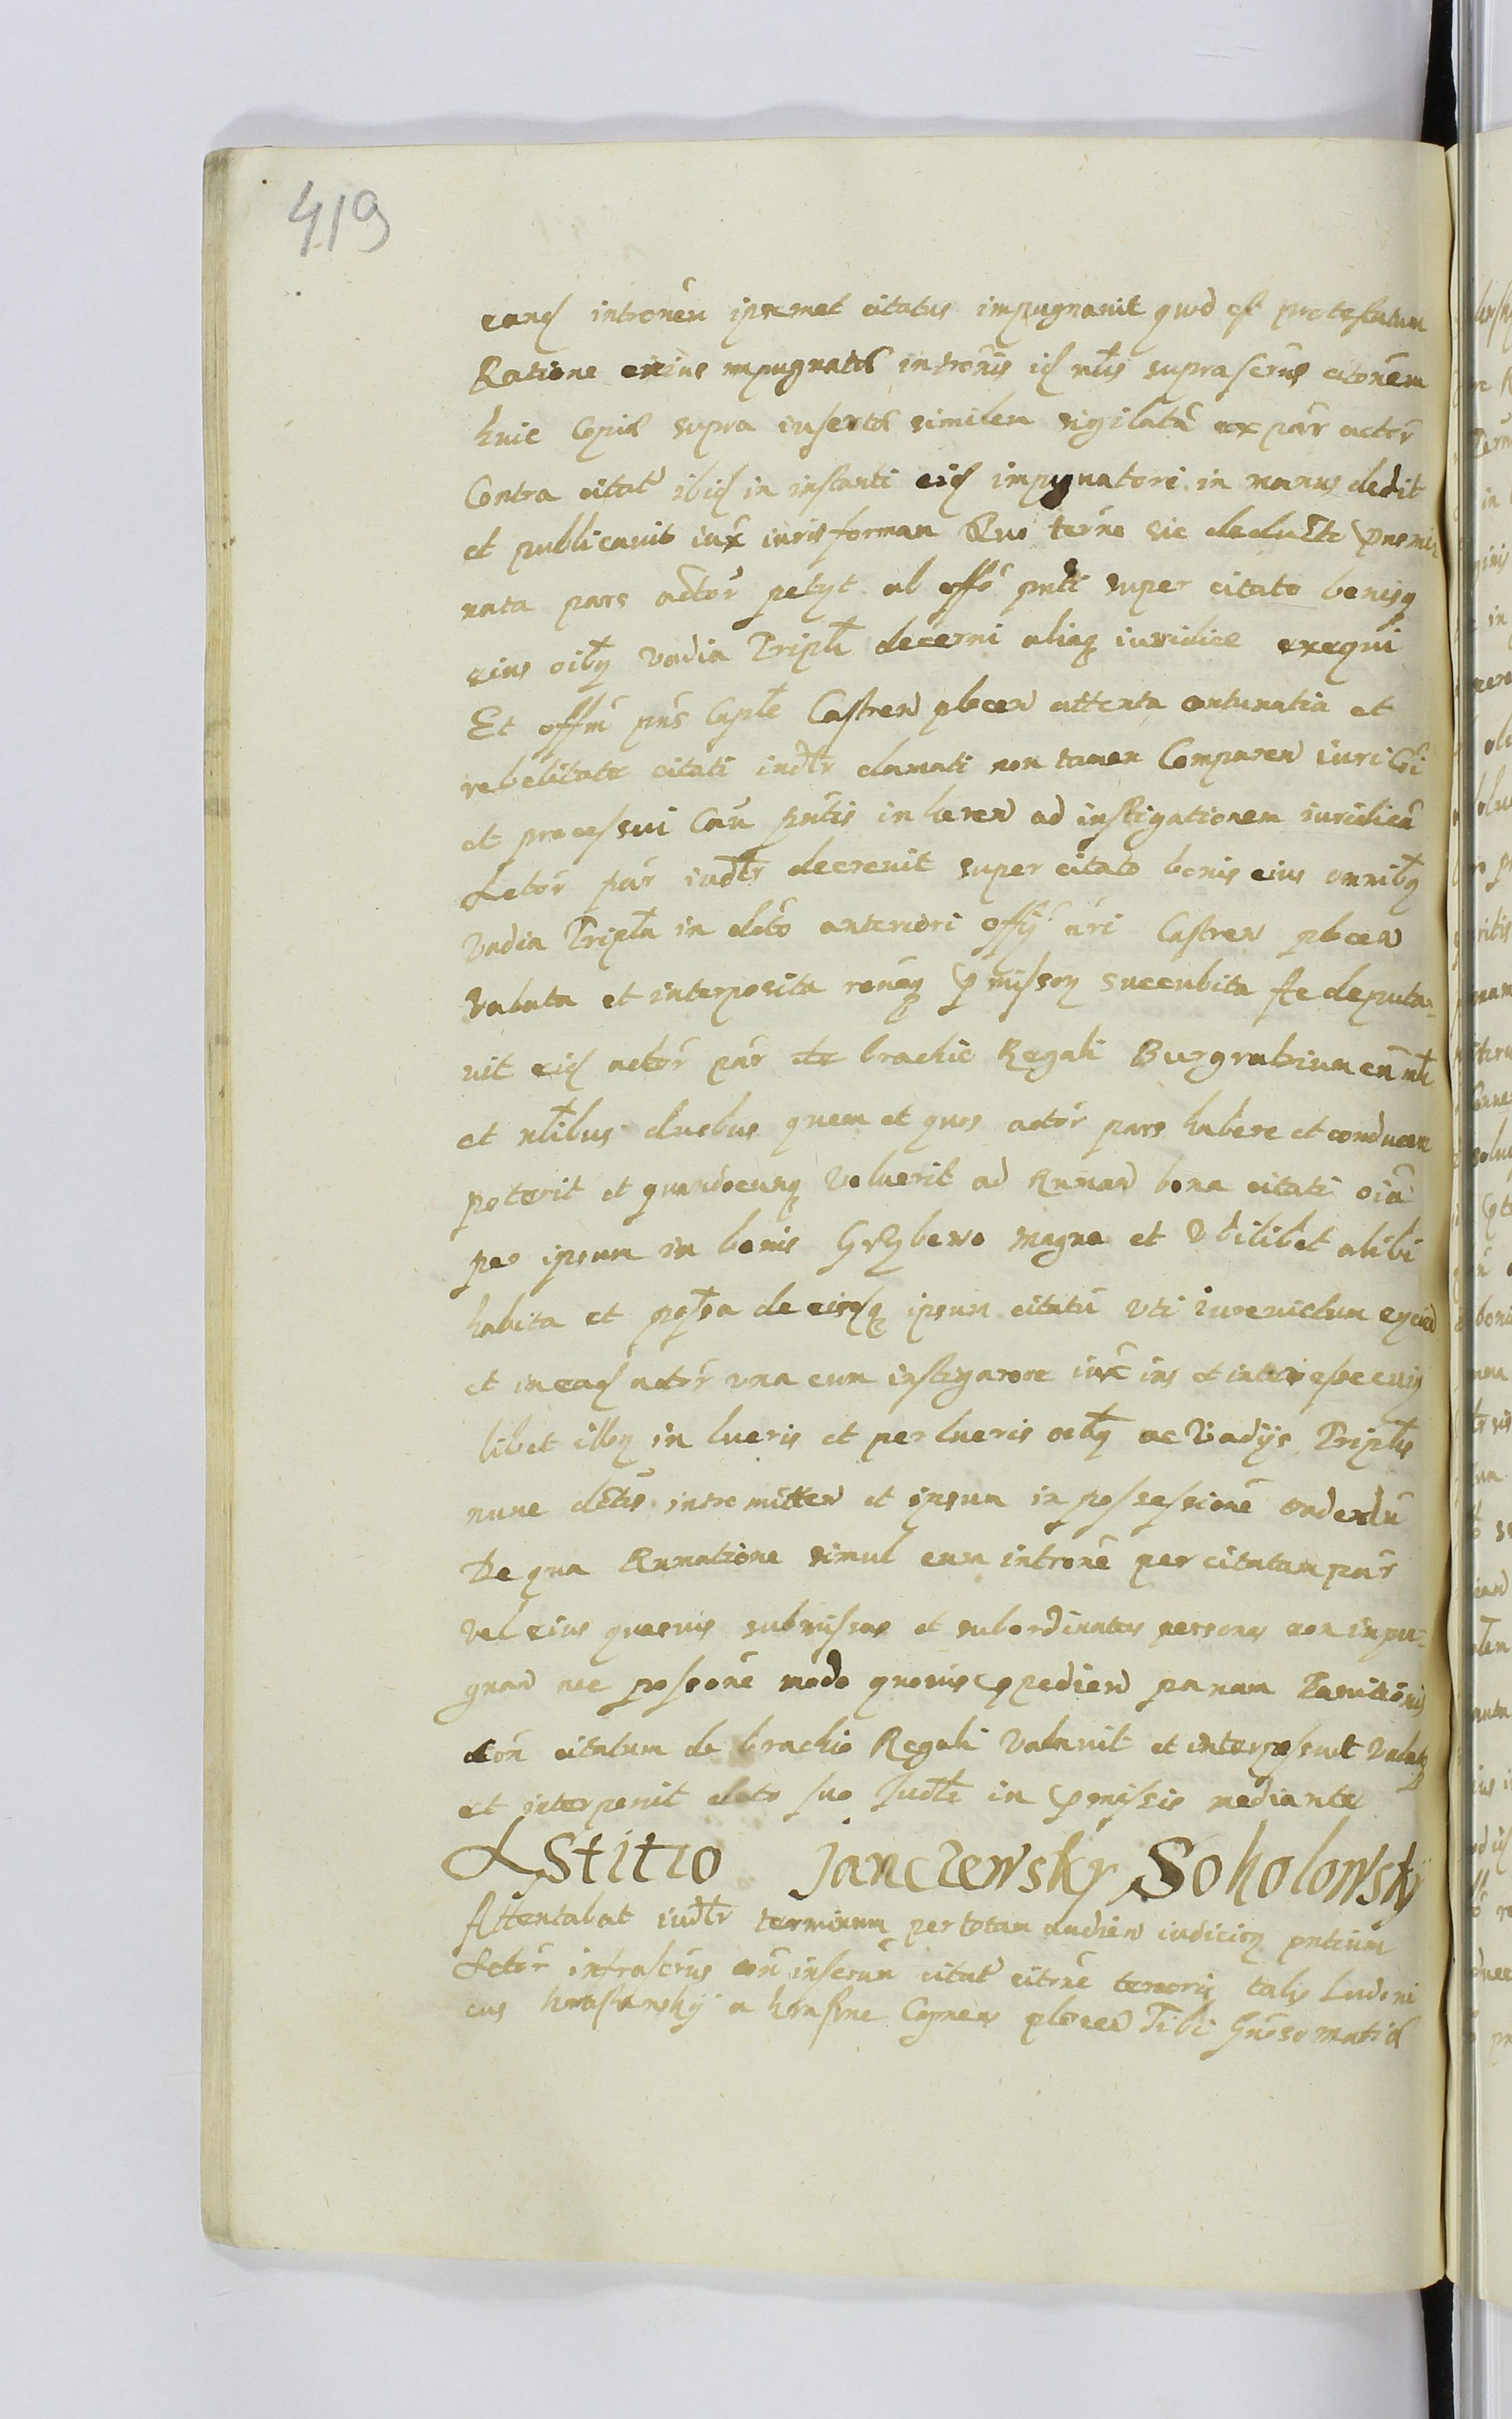 419
eand intronem ipsemet citatus impugnavit quod est protestatum
Ratione cuius impugnatae intronis id mlis suprascrus citonem
huic Copiae supra insertae similem sigilatã ex par actor
Contra citat ibid in instanti eid impugnatori in manus dedit
et publicavit iux iuris formam Quo terno sic deducto pnomi
nata pars actor petyt ab offo pnti super citato bonisq
eius oibq vadia Tripla decerni aliaq iuridice exequi
Et offm pns Caple Castren plocen attenta contumatia et
rebelitate citati indtr clamati non tamen Comparen iuri
et processui Cau pntis in heren ad instigationem iuridicã
Actor par iudtr decrevit super citato bonis eius omnibq
Vadia Tripla in dcto anteriori offij nri Castren plocen
valata et interposita roneq pmissor succubita Ac deputa
vit eid actor par de brachio Regali Burgrabium cu mli
et nlibus duobus quem et quos actor pars habere et conducere
poterit et quandocunq voluerit ad Rumand bona citati oia
per ipsum in bonis Grzybewo magna et Ubilibet alibi
habita et possa de eisdq ipsum citatũ uti iurevictum eyciend
et in ead actor una cum instigatore iux ius et interesse cuiq
libet illoq in lucris et perlucris oibq ac Vadijs Triplis
nunc dctis intromitten et ipsum in possessione tradendũ
De qua Rumatione simul cum introne per citatam par
vel eius quasvis submissas et subordinatas personas non impu
gnand nec possone modo quovis pedien panam Banitionis
con citatum de brachio Regali valavit et interposuit valatq
et interponit dcto suo Judtr in pmissis mediante
Astitio Janczewsky Sokolowsky
Attentabat iudtr terminum per totam audien iudicioq pntium
Actor infrascrus con inscrum citat citone tenoris talis Ludovi
cus krasinsky a krasne Capneus plocen Tibi Gnoso Mathiae